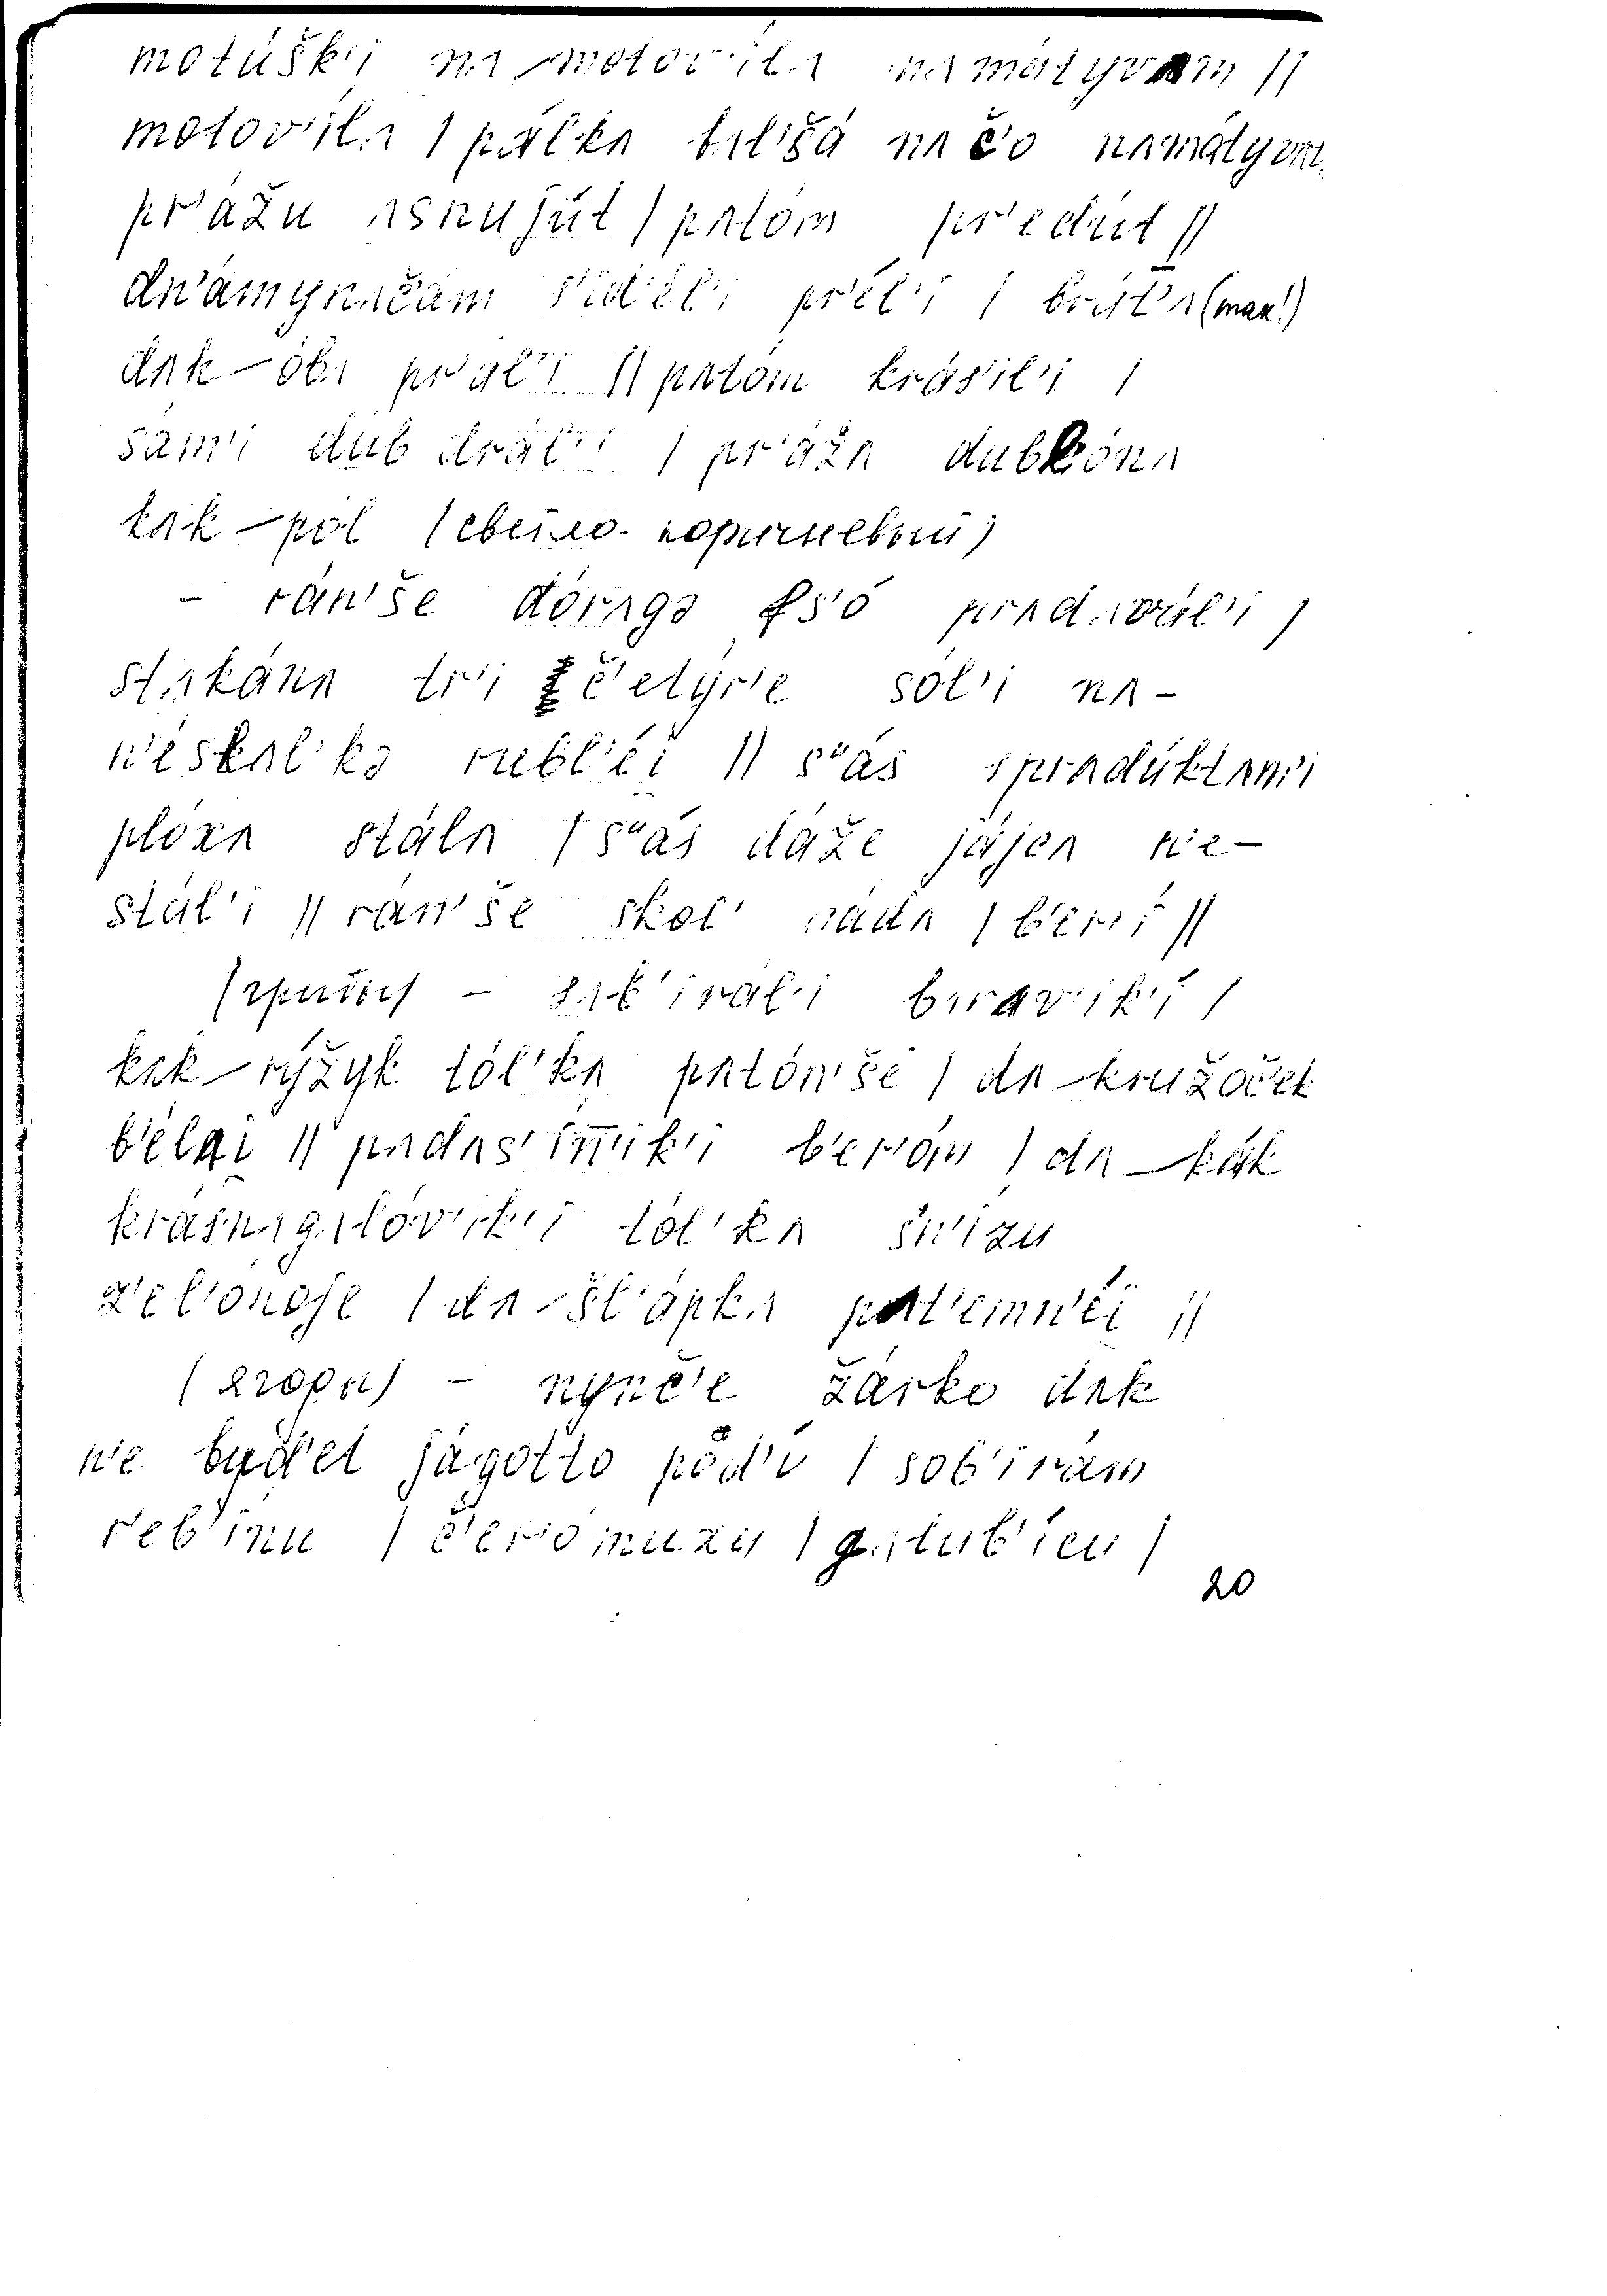 motúšk'i nʌ motov'ílʌ nʌmátyvʌm ||
motov'ílʌ | pálkʌ bʌl'šá nʌ č'o nʌmátyvʌt
pr'ážu ʌsnujút | pʌtóm pr'edút ||
dn'ámynʌčám s'id'él'i pr'él'i | brát'ʌ (так!)
dʌk óbʌ pr'ál'i || pʌtóm krás'il'i |
sám'i dub drál'i | pr'ážʌ dubl'ónʌ
kʌk pól (светло-коричневый)
– rán'še dórʌgə fs'ó prʌdʌvál'i |
stʌkánʌ tr'i č'etýr'e sól'i nʌ–
n'éskʌl'kə rubl'éi̯ || s''ás sprʌdúktʌm'i
plóxʌ stálʌ | s''ás dáže jájcʌ n'e–
stál'i || rán'še skol' nádʌ | ber'í ||
(грибы) – sʌb'irál'i bʌrʌv'ik'í |
kʌk rýžyk tól'kʌ pʌtón'še | dʌ kružoček
b'élʌi̯ || pʌdʌs'ín̄ik'i b'er'óm | dʌ kák
krásnʌgʌlóv'ik'i tól'kʌ sn'ízu
z'el'ónoje | dʌ šl'ápkʌ pʌt'emn'éi̯ ||
(ягоды) – nynč'e žárko dʌk
n'e búd'et jágotto pód'i | sob'irám
r'eb'ínu | č'er'ómuxu | gʌlub'ícu |
20